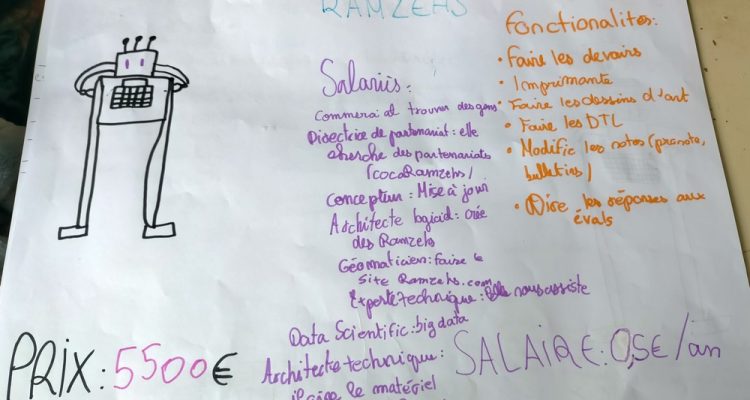 RAMZEHS
Salariés:
Commercial trouver des gens
Directrice de partenariat: elle
cherche des partenariats
(cocaRamzehs)
Concepteur: Mise à jour
Architecte logiciel: crée
des Ramzehs
Géomaticien: faire le
site Ramzehs.com
Experte technique: Elle nous assiste
Data Scientific: big data
Architecte technique:
le matériel
Fonctionalités:
• Faire les devoirs
• Imprimante
• Faire les dessins d'art
• Faire les DTL
• Modific les notes (pronote,
bulletins)
• Dire les réponses aux
évals
PRIX: 5500€
SALAIRE: 0,5€/an